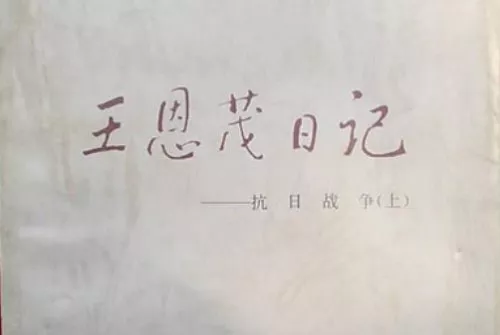 王恩茂日记
——抗日战争(上)